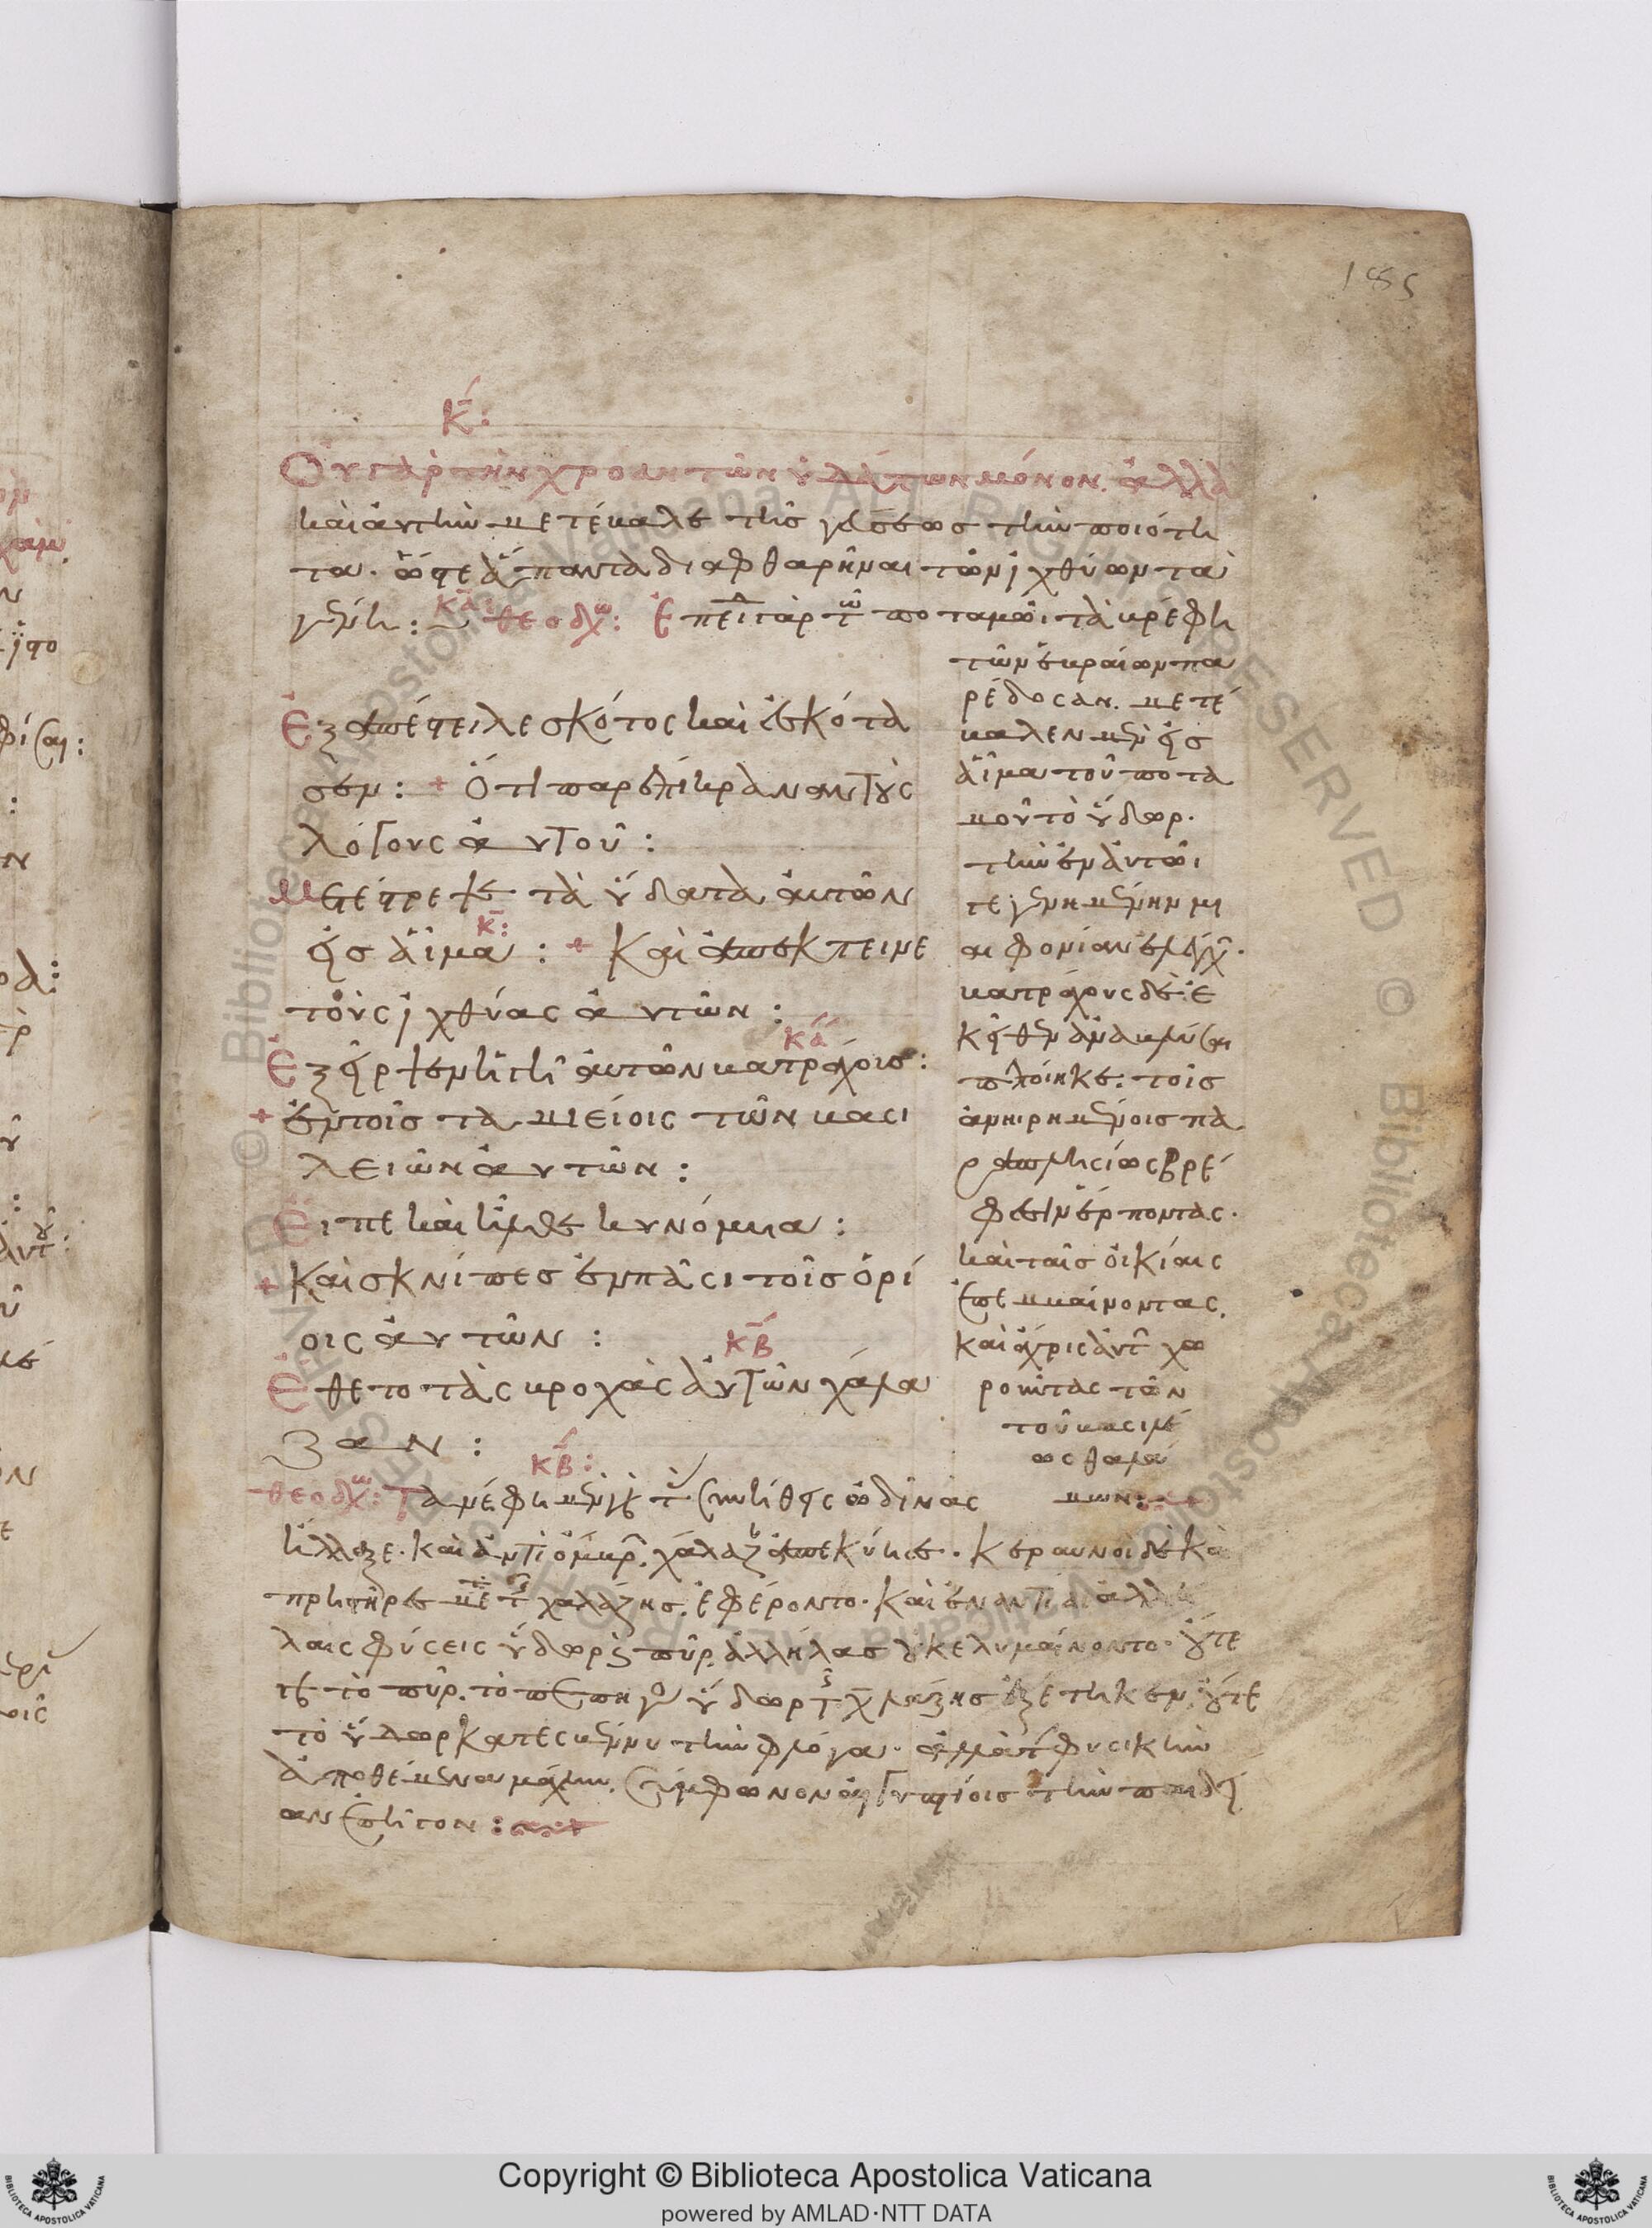 185
κ̄:
Οὐ γὰρ τὴν χρόαν τῶν ὑδάτων μόνον. ἀλλὰ
καὶ αὐτὴν μετέβαλε τῆς γεύσεως τὴν ποιότη
τα. ὥστε ἅπαντα διαφθαρῆναι τῶν ἰχθύων τὰ
γένη: κᾱ: θεοδχω: Ἐπεὶ γὰρ τῶ ποταμῶι τὰ βρέφη
τῶν ἑβραίων πα
ρέδοσαν. μετέ
βαλεν μὲν εἰς
αἷμα τοῦ ποτα
μοῦ τὸ ὕδωρ.
τὴν ἐν αὐτῶι
τεγενημένην μι
αιφονίαν ἐλέγχ.
βατράχους δὲ ἐ
κεῖθεν ἀναβλύσαι
πεποίηκε. τοῖς
ἀνηρημένοις πα
ραπλησίως βρέ
φεσιν ἕρποντας.
καὶ ταῖς οἰκίαις
ἐπεμβαίνοντας.
καὶ ἄχρις αὐτ χω
ροῦντας τῶν
τοῦ βασιλέ
ως θαλά
μων:
Ἐξαπέστειλε σκότος καὶ ἐσκότα
σεν: + Ὅτι παρεπίκραναν τοὺς
λόγους αὐτοῦ:
Μετέστρεψε τὰ ὕδατα αὐτῶν
κ̄:
εἰς αἷμα: + Καὶ ἀπέκτεινε
τοὺς ἰχθύας αὐτῶν:
κᾱ
Ἐξῆρψεν ἡ γῆ αὐτῶν βατράχους:
+ ἐν τοῖς ταμιείοις τῶν βασι
λειῶν αὐτῶν:
Εἶπε καὶ ἦλθε κυνόμυια:
+ Καὶ σκνίπες ἐν πᾶσι τοῖς ὁρί
οις αὐτῶν:
κβ̄
Ἔθετο τὰς βροχὰς αὐτῶν χάλα
ζαν:
κβ̄:
θεοδχω: Τὰ νέφη μὲν γὰρ τ συνήθεις ὠδῖνας
ἤλλαξε. καὶ ἀντὶ ὄμβρ. χάλαζ ἀπεκύησε. κεραυνοὶ δὲ καὶ
πρηστῆρες μετ τ χαλάζης. ἐφέροντο. καὶ ἐναντίαι ἀλλή
λαις φύσεις ὕδωρ καὶ πῦρ. ἀλλήλας οὐκ ἐλυμαίνοντο. οὔτε
γὰρ τὸ πῦρ. τὸ πεπηγὸς ὕδωρ τ χαλάζης ἐξέτηκεν. οὔτε
τὸ ὕδωρ κατεσβέννυ τὴν φλόγα. ἀλλὰ τ φυσικὴν
ἀποθέμενα μάχην. σύμφωνον αἰγυπτίοις τὴν παιδεί
αν ἐπῆγον: